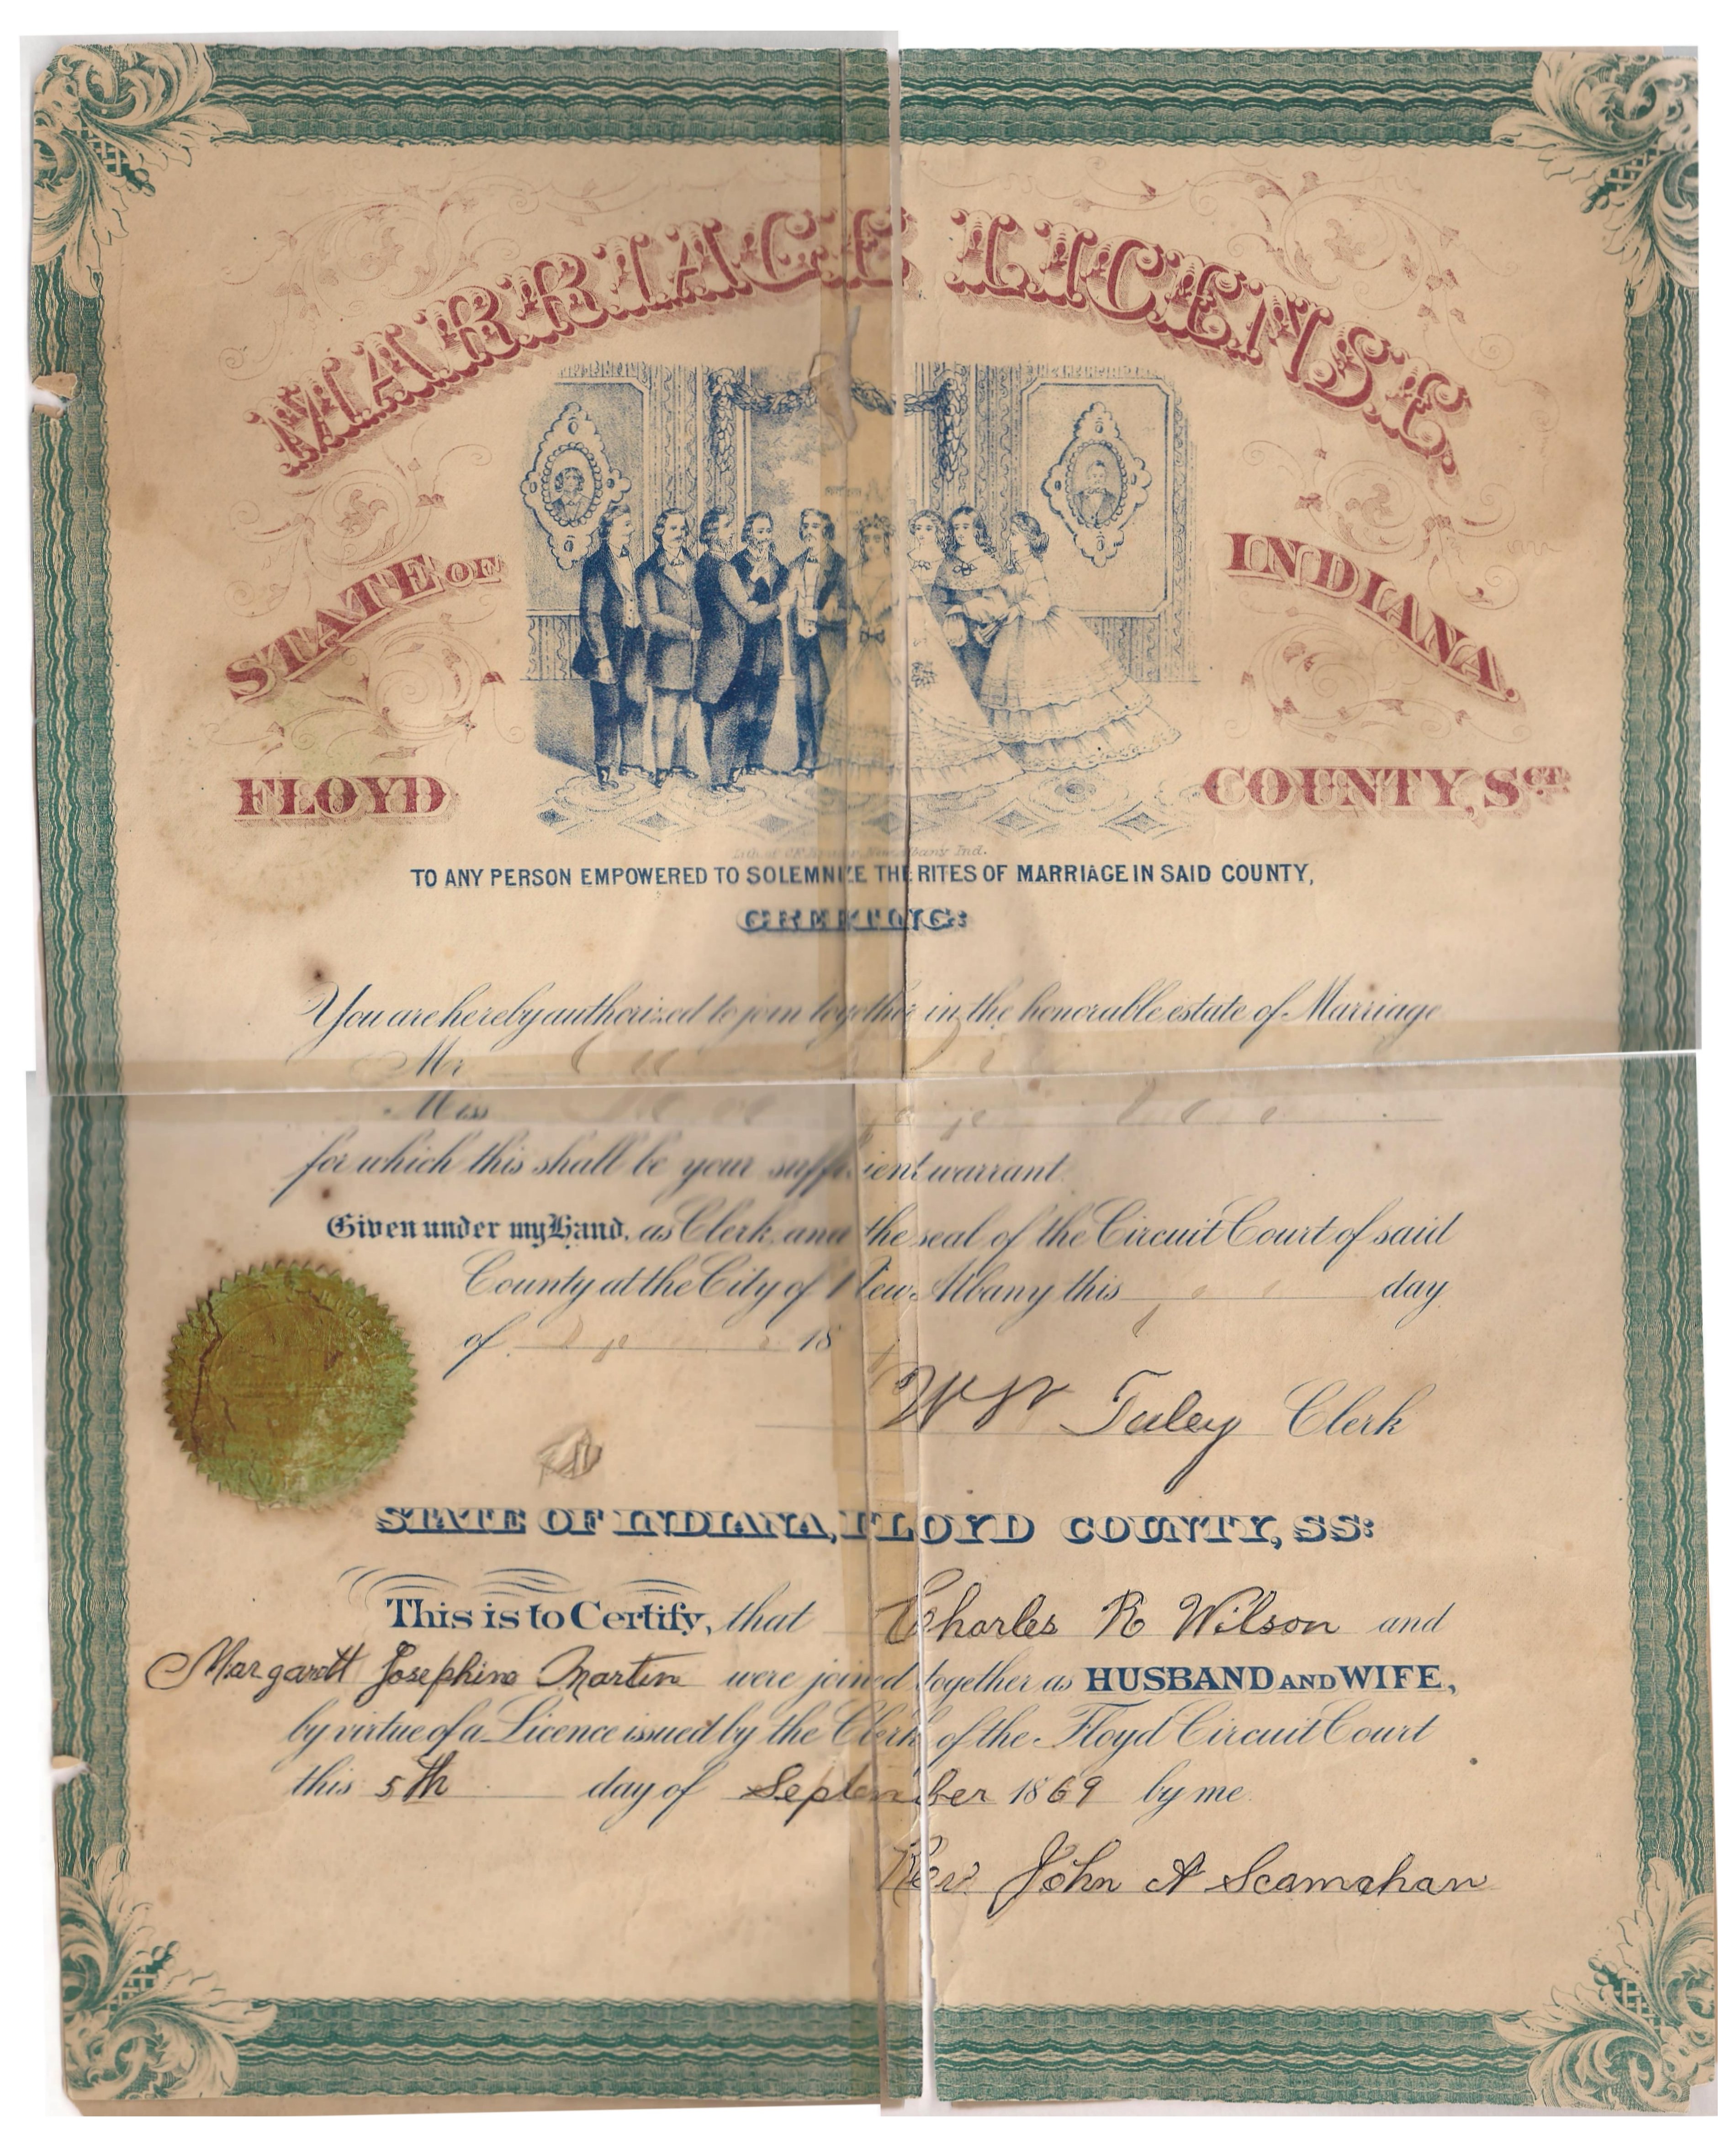 MARRIAGE LICENSE.
STATE OF INDIANA.
FLOYD COUNTY, SCT.
Lith. of Albany Ind.
TO ANY PERSON EMPOWERED TO SOLEMNIZE THE RITES OF MARRIAGE IN SAID COUNTY,
GREETING:
You are hereby authorized to join together in the honorable estate of Marriage
Mr
Miss
for which this shall be your sufficient warrant.
Given under my Hand, as Clerk, and the seal of the Circuit Court of said
County at the City of New Albany this day
of 18
W W Tuley Clerk
STATE OF INDIANA, FLOYD COUNTY, SS:
This is to Certify, that Charles R Wilson and
Margarett Josephine Martin were joined together as HUSBAND AND WIFE,
by virtue of a Licence issued by the Clerk of the Floyd Circuit Court
this 5th day of September 1869 by me
Rev. John A Scamahan